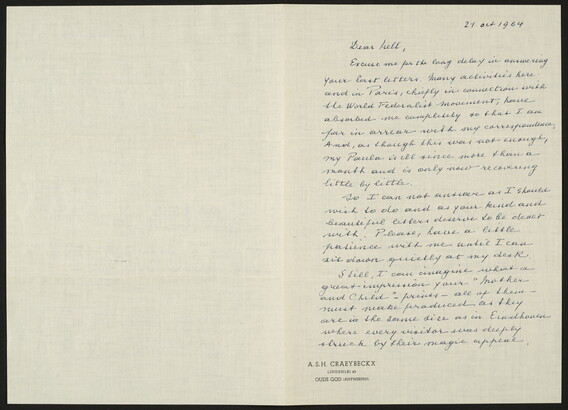 21 oct 1964
Dear Nell,
Excuse me for the long delay in answering
your last letters. Many activities here
and in Paris, chiefly in connection with
the World Federalist Movement, have
absorbed me completely so that I am
far in arrear with my correspondence.
And, as though this was not enough,
my Paula is ill since more than a
month and is only now recovering
little by little.
So I can not answer as I should
wish to do and as your kind and
beautiful letters deserve to be dealt
with. Please, have a little
patience with me until I can
sit down quietly at my desk.
Still, I can imagine what a
great impression your "Mother
and Child" - prints - all of them -
must make produced as they
are in the same size as in Eindhoven
where every visitor was deeply
struck by their magic appeal.
A.S.H. CRAEYBECKX
OUDE GOD (ANTWERPEN)